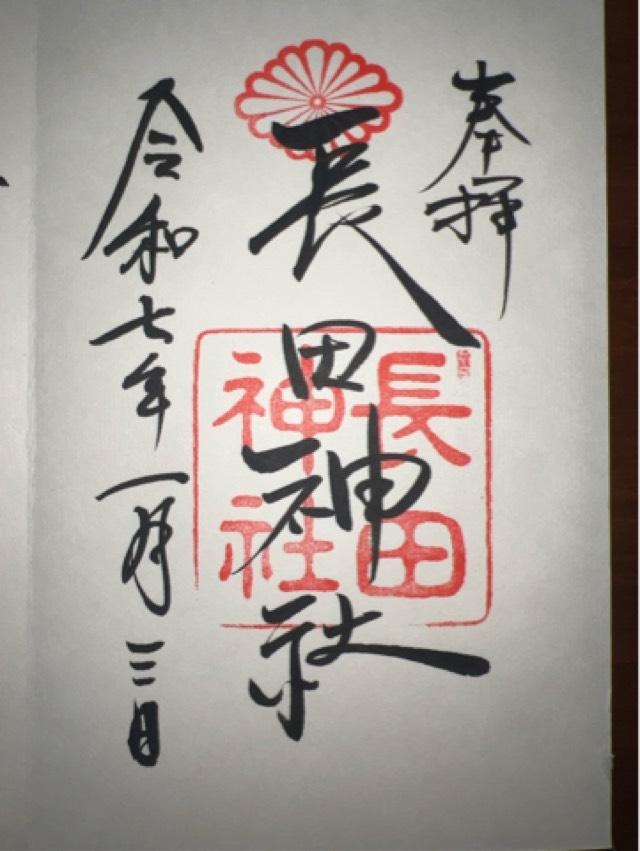 奉拝
長田神社
長田
神社
令和七年一月三日